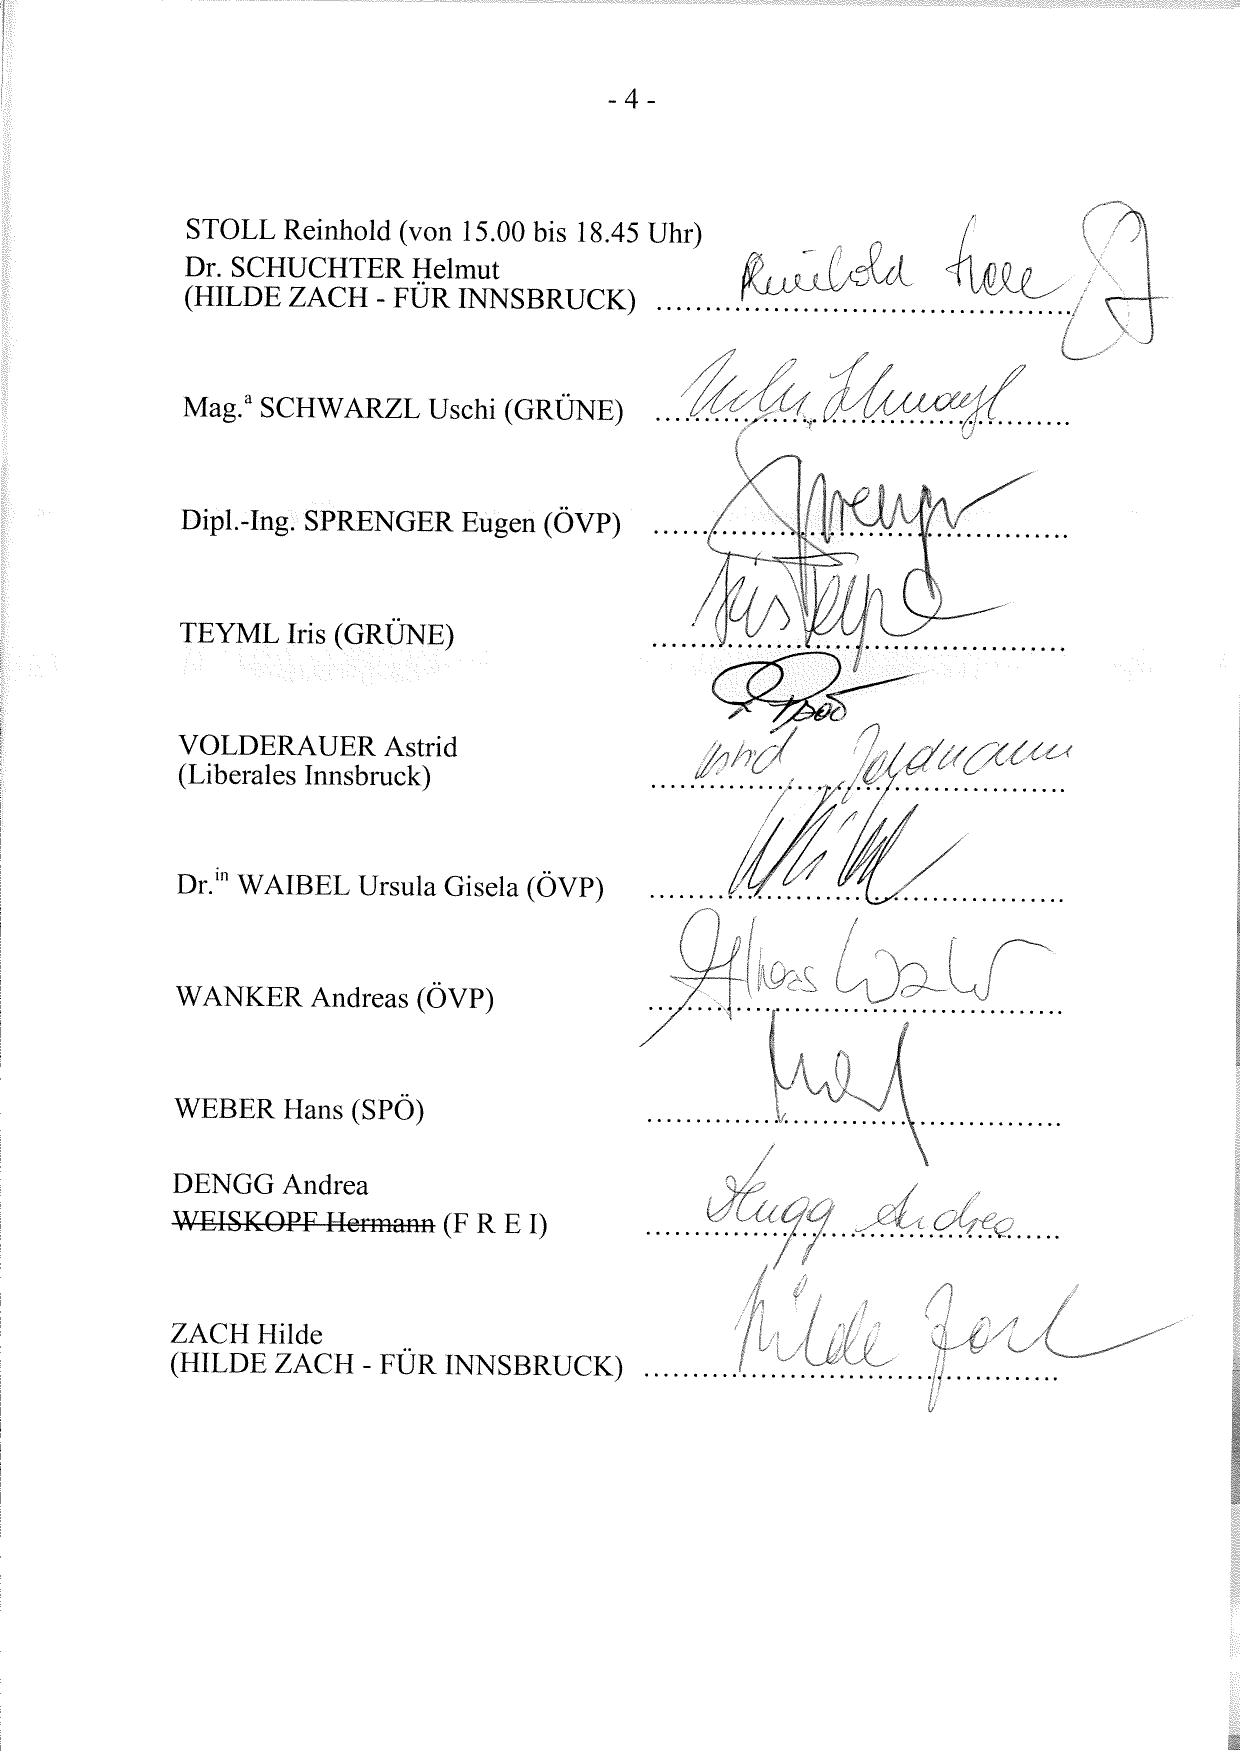 - 4 -
STOLL Reinhold (von 15.00 bis 18.45 Uhr)
Dr. SCHUCHTER Helmut
(HILDE ZACH - FÜR INNSBRUCK) ........................................ Reinhold
Mag.ª SCHWARZL Uschi (GRÜNE) ........................................
Dipl.-Ing. SPRENGER Eugen (ÖVP) ........................................
TEYML Iris (GRÜNE) ........................................ Iris
VOLDERAUER Astrid
(Liberales Innsbruck) ........................................ Astrid
Dr.in WAIBEL Ursula Gisela (ÖVP) ........................................
WANKER Andreas (ÖVP) ........................................
WEBER Hans (SPÖ) ........................................
DENGG Andrea
WEISKOPF Hermann (F R E I) ........................................ Dengg Andrea
ZACH Hilde
(HILDE ZACH - FÜR INNSBRUCK) ........................................ Hilde Zach